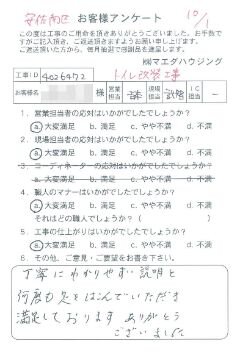 安佐南区 お客様アンケート 10/1
この度は工事のご用命を頂きありがとうございました。お手数で
すがご記入頂き、ご返送頂きますようお願い申し上げます。
ご返送頂いた方から、毎月抽選で感謝品を進呈します。
㈱マエダハウジング
工事ID 4026472 トイレ改修工事
お客様名 様 営業担当 現場担当 IC担当 -
1. 営業担当者の応対はいかがでしたでしょうか?
a.大変満足 b.満足 c.やや不満 d.不満
2. 現場担当者の応対はいかがでしたでしょうか?
a.大変満足 b.満足 c.やや不満 d.不満
3. コーディネーターの応対はいかがでしたでしょうか?
a.大変満足 b.満足 c.やや不満 d.不満
4. 職人のマナーはいかがでしたでしょうか?
a.大変満足 b.満足 c.やや不満 d.不満
それはどの職人でしょうか?( )
5. 工事の仕上がりはいかがでしたでしょうか?
a.大変満足 b.満足 c.やや不満 d.不満
6. その他、ご意見・ご要望をお書き下さい。
丁寧にわかりやすい説明と
何度も足をはこんでいただき
満足しております ありがとう
ございました